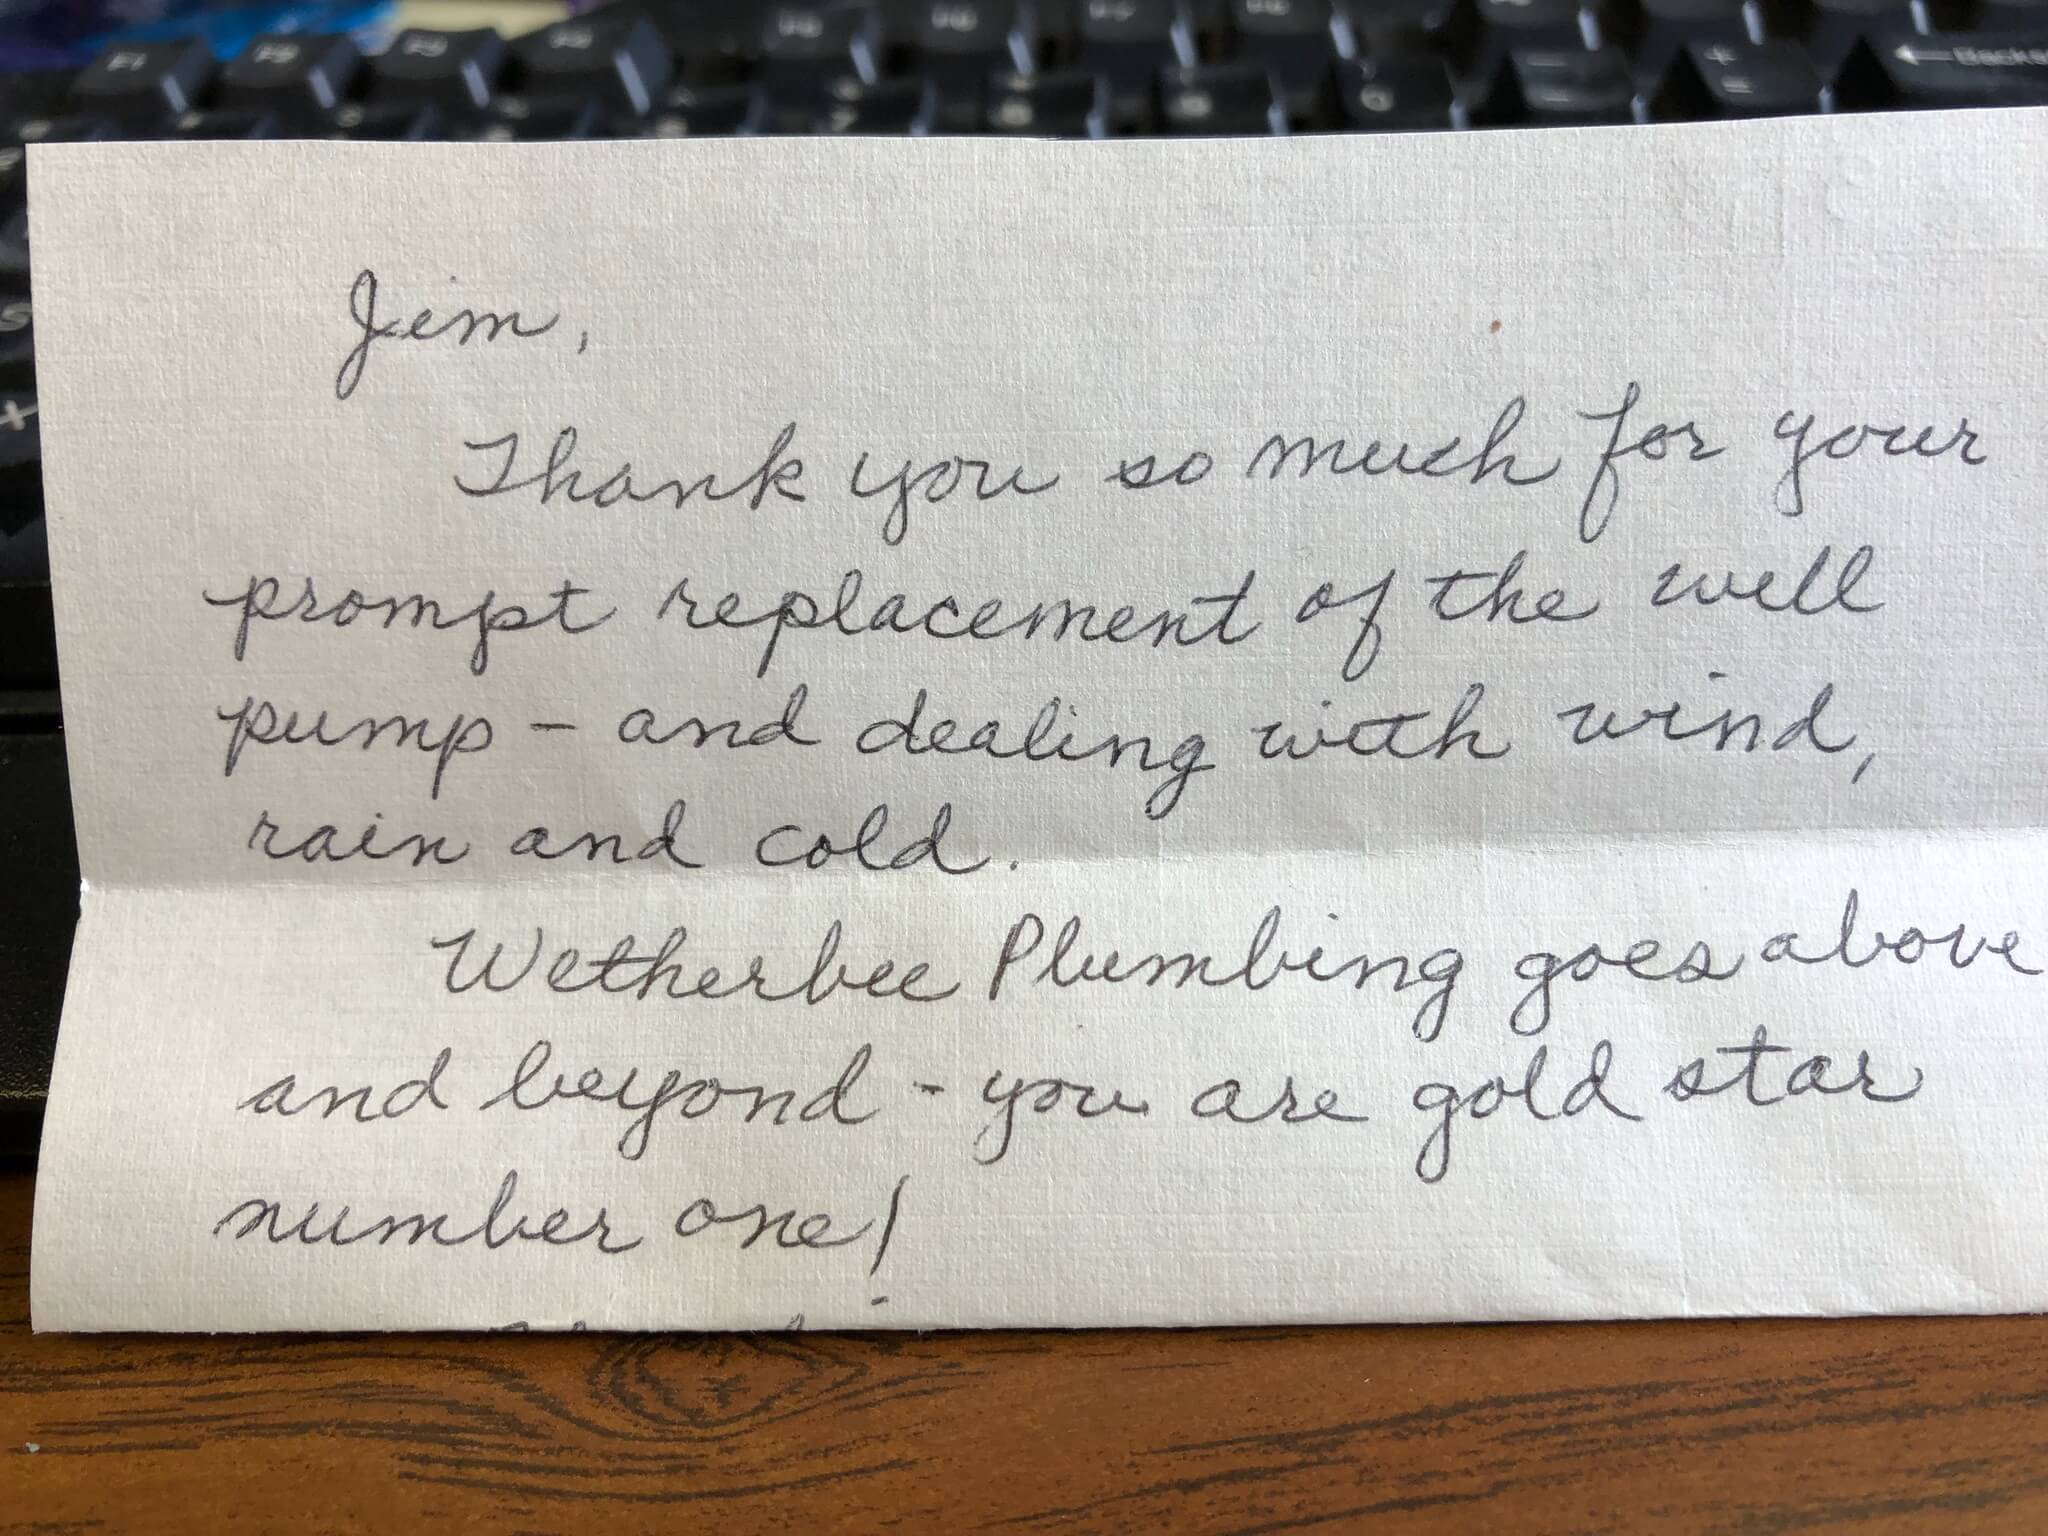 F1 F2 F3
Backs
Jim,
Thank you so much for your
prompt replacement of the well
pump - and dealing with wind,
rain and cold.
Wetherbee Plumbing goes above
and beyond - you are gold star
number one!